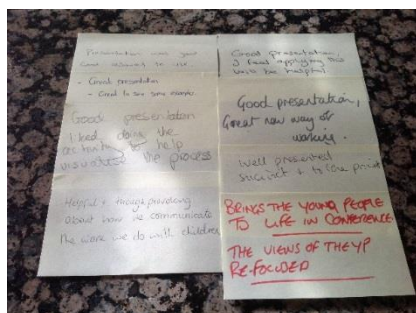 Presentation was good
- Good presentation
- Good to see some examples
Good presentation
liked doing the
activity to help
visualise the process
Helpful + thought provoking
about how we communicate
the work we do with children
Good presentation,
I feel applying this
will be helpful.
Good presentation,
Great new way of
working.
Well presented
succinct + to the point
BRINGS THE YOUNG PEOPLE
TO LIFE IN CONFERENCE
THE VIEWS OF THE YP
RE-FOCUSED